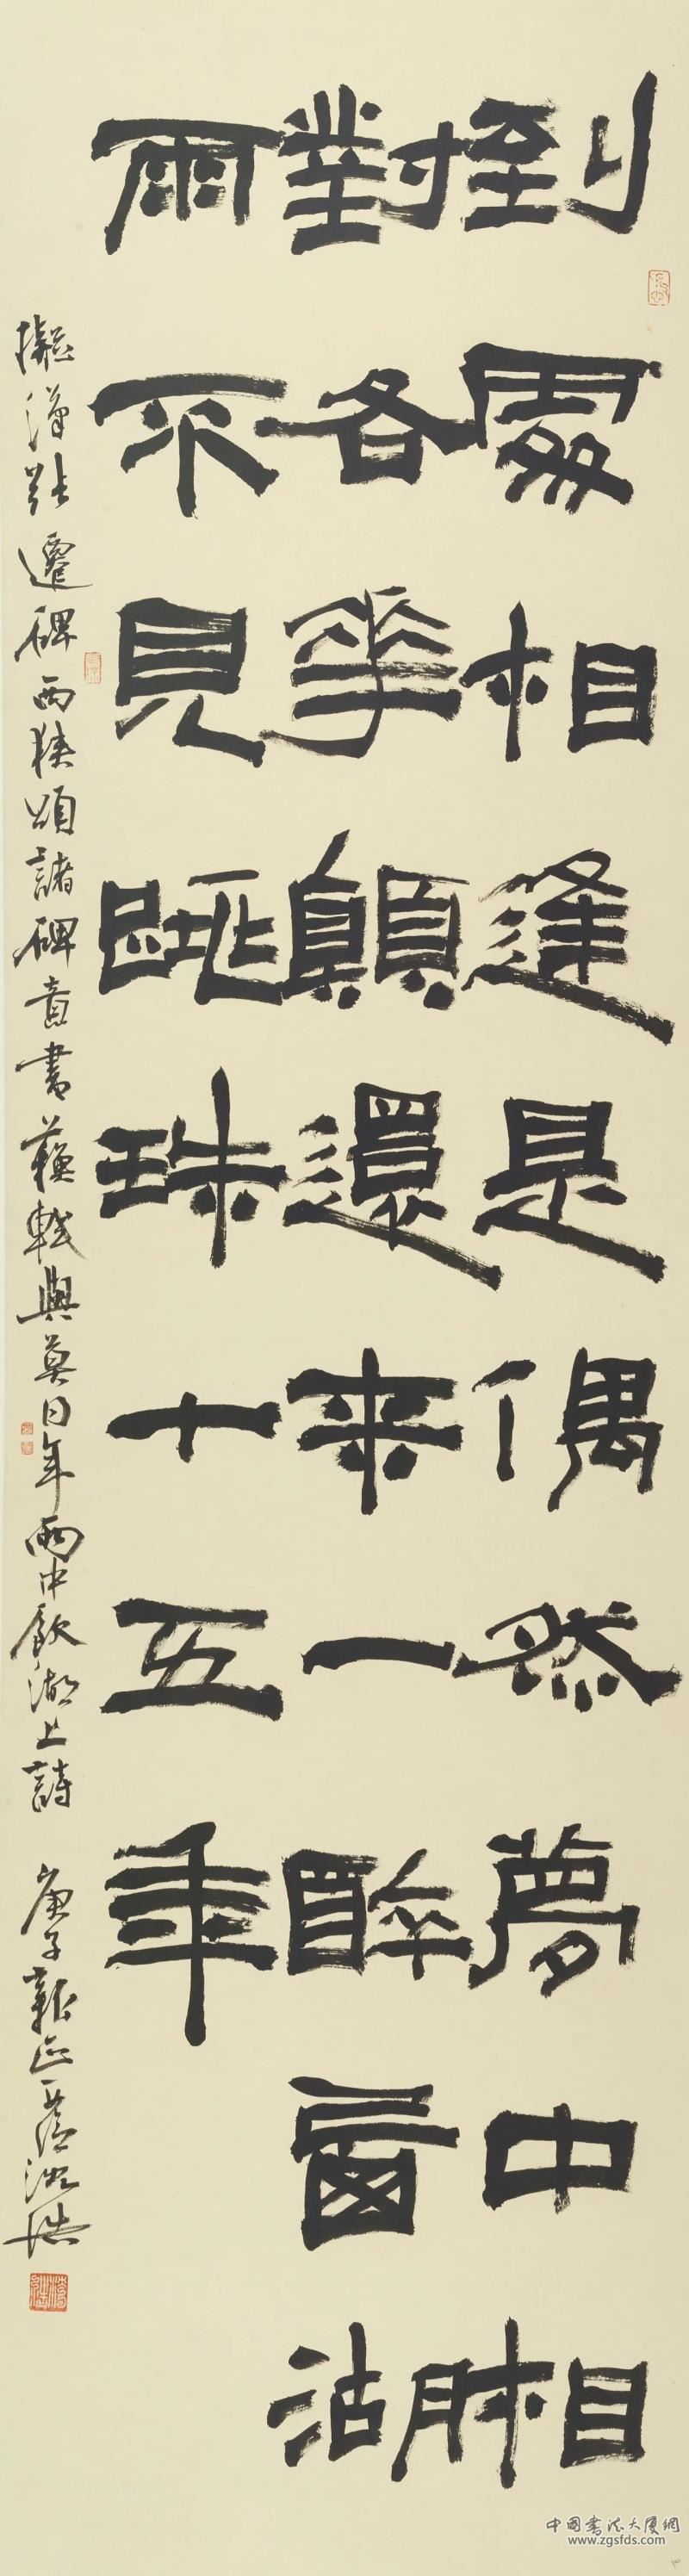 到處相逢是偶然夢中相
對各華顛還來一醉西湖
雨不見跳珠十五年
擬漢張遷碑西狹頌諸碑意書蘇軾與莫同年雨中飲湖上詩 庚子新正
中國書法大廈網
www.zgsfds.com